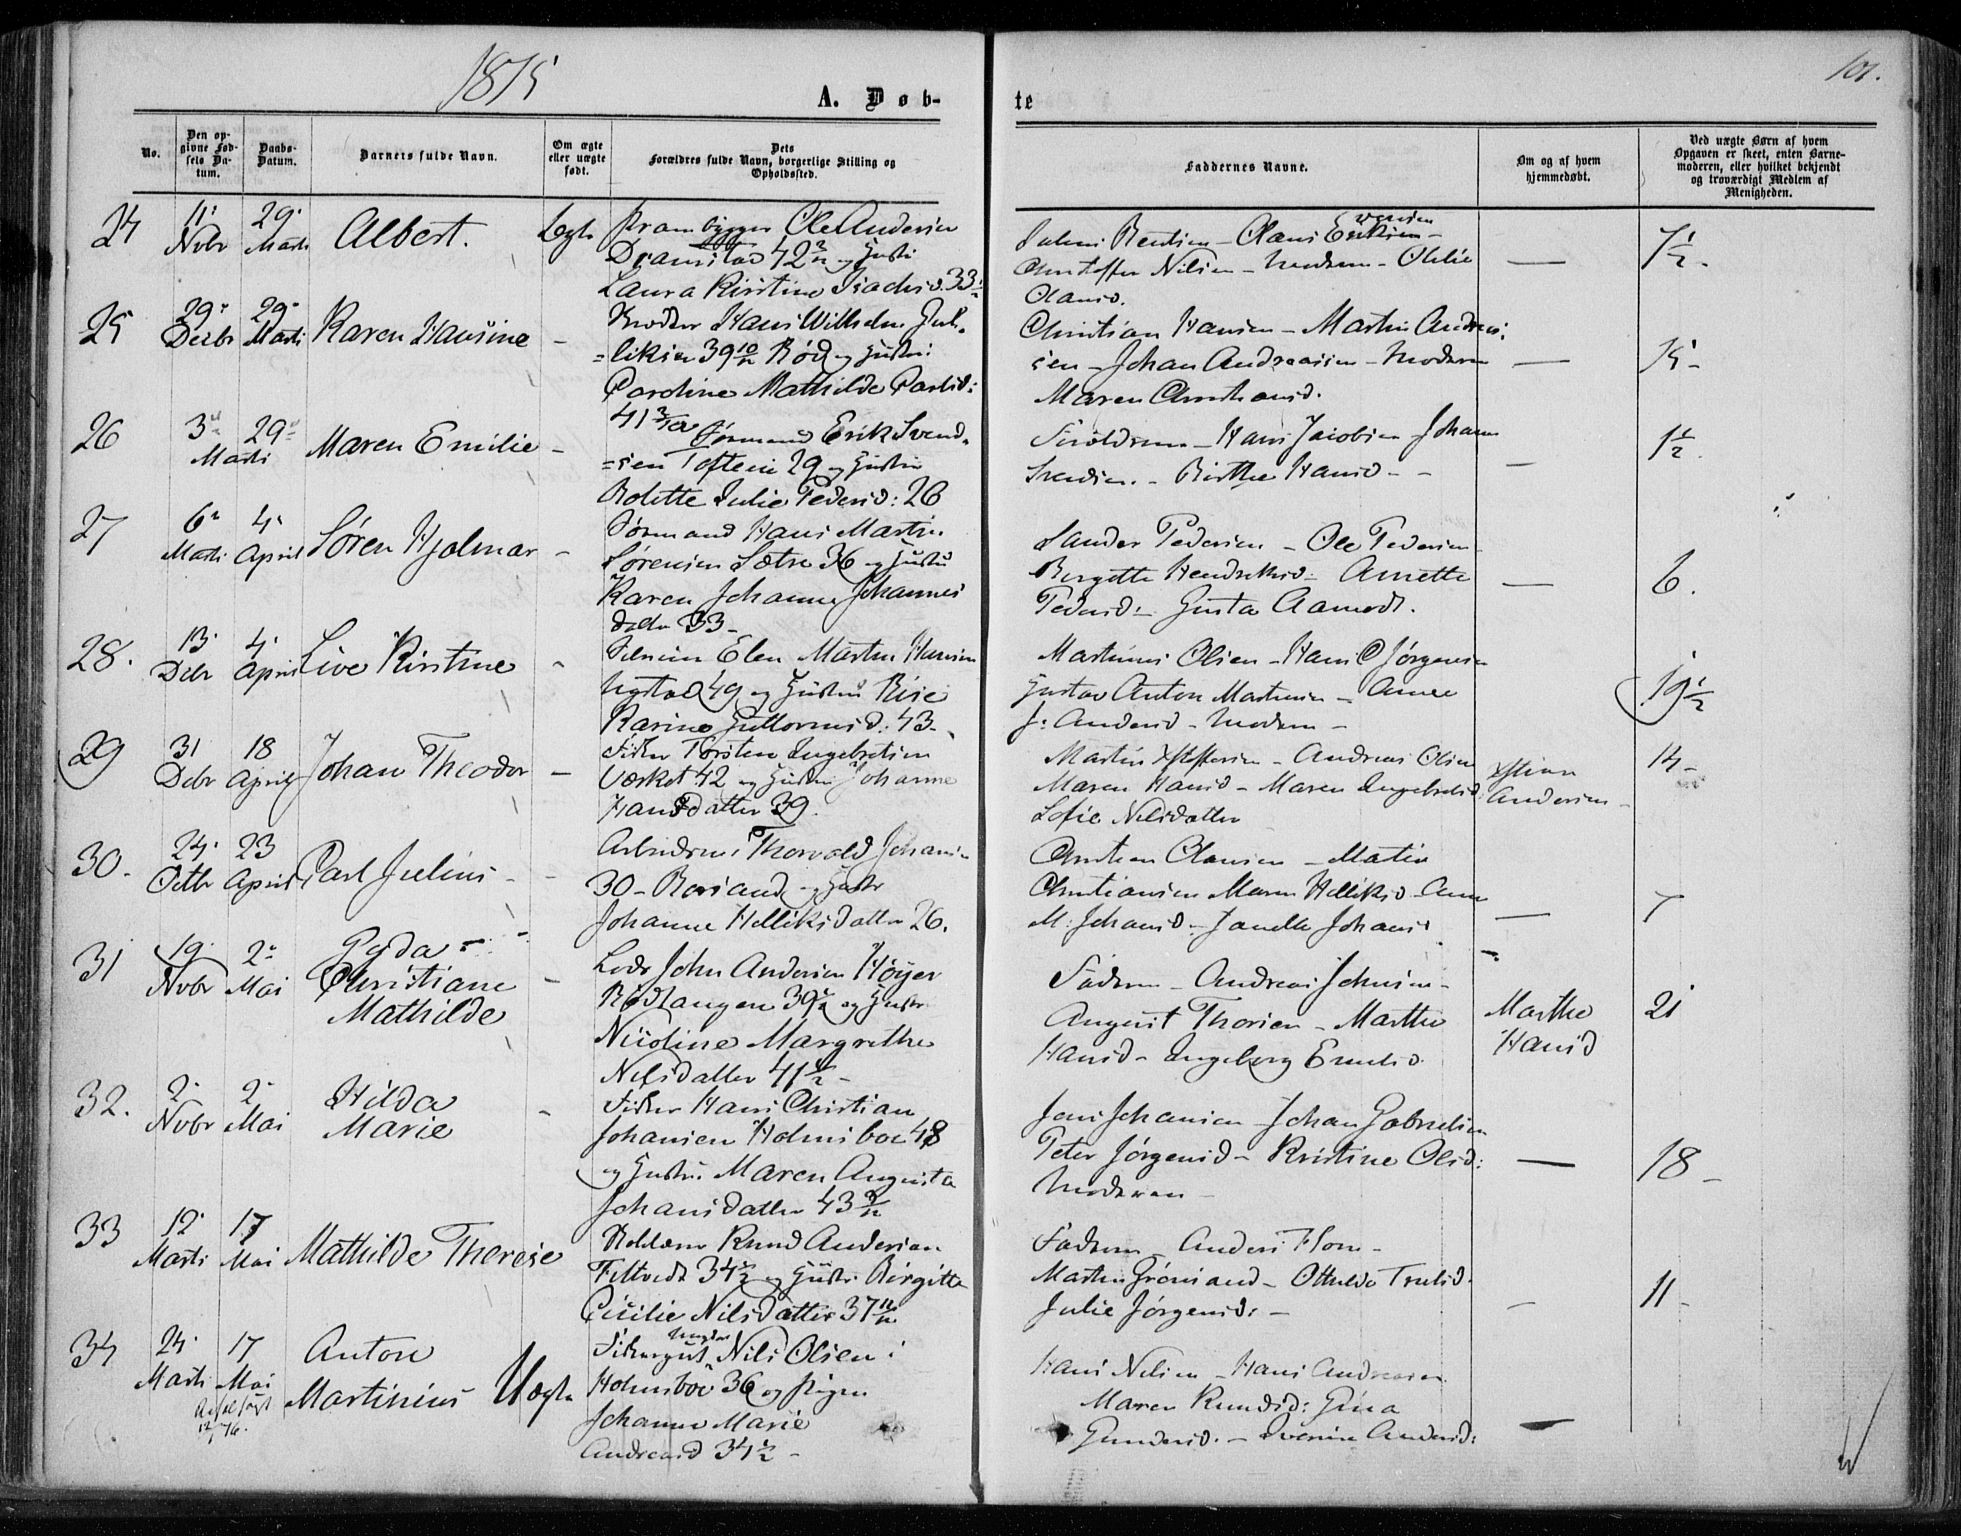 1875
101.
A. Døb-
te
No.
Den op-
givne Fød-
sels Da-
tum.
Daabs-
Datum.
Barnets fulde Navn.
Om ægte
eller uægte
født.
Dets
Forældres fulde Navn, borgerlige Stilling og
Opholdssted.
Faddernes Navne.
Om og af hvem
hjemmedøbt.
Ved uægte Børn af hvem
Opgaven er skeet, enten Barne-
moderen, eller hvilket bekjendt
og troværdigt Medlem af
Menigheden.
24
11
Nvbr
29
Marts
Albert.
Ægte
Prambygger Ole Andersen
Dramstad 42 og Hustru
Laura Kirstine Isachsd. 33
Olaus Evensen
Christoffer Nilsen - Moderen - Olelie
Olausd.
7½.
25
29
Decbr
29
Marts
Karen Hansine -
Hans Wilhelm Jul.
=liksen 39 10/12 Rød og Hustru
Caroline Mathilde Carlsd:
41
Christian Hansen - Martin Andrea-
sen - Johan Andreassen - Moderen
Maren Christiansd.
26
3
29
Marts
Maren Emilie -
Sømand Erik Svend-
=sen Tofteøen 29 og Hustru
Bolette Julie Pedersd: 26
Forældrene - Hans Jacobsen Johann
Svendsen. - Birthe Hansd - -
1½.
27
6
Marts
4
April
Søren Hjalmar -
Sømand Hans Martin
Sørensen Sætre 36 og Hustru
Karen Johanne Johannes
datter 33 -
Sander Pedersen - Ole Pedersen
Bergette Hendriksd - Annette
Pedersd - Gusta Aamodt.
6.
28.
13
Debr
4
April
Live Kirstine -
Martin Hansen
49 og Hustru Lise
Karine Guttormsd. 43 -
Martinus Olsen - Hans O Jørgensen
Gustav Anton Martinsen - Anne
J: Andersd - Moderen -
19½
29
31
Debr
18
April
Johan Theodor -
Fisker Torsten Ingebretsen
Værket 42 og Hustru Johanne
Hansdatter 39.
Martin Xstoffersen - Andreas Olsen
Maren Hansd - Maren Ingebretsd
Sofie Nilsdatter
Xstian
Andersen -
14 -
30.
24
Octbr
23
April
Carl Julius - -
Arbeidsm: Thorvald Johans-
30 - og Hustru
Johanne Helliksdatter 26.
Christian Olausen - Matin
Christiansen Maren Helliksd - Anne
M: Johansd - Janette Johansd
7
31
19
Nvbr
2
Mai
Gyda
Christiane
Mathilde
-
Lods John Andersen Høyer
Rødtangen 39 og Hustru
Nicoline Margrethe
Nilsdatter 41½ -
Faderen - Andreas Johnsen -
August Thorsen - Marthe
Hansd - Ingeborg Emelisd
Marthe
Hansd
21
32.
2
Nvbr
2
Mai
Hilda
Marie
-
Fisker Hans Christian
Johansen Holmsboe 48
og Hustru Maren Augusta
Johansdatter 43
Jens Johansen - Johan Gabrielsen
Peter Jørgensd - Kristine Olsd:
Moderen -
18 -
33
12
Marts
17
Mai
Mathilde Therese
Knud Andersen
Filtvedt 34½ og Hustru Birgitte
Cicilie Nilsdatter 37
Faderen - Anders Flom -
Martin Grønsand - Othilde Trulsd
Julie Jørgensd: -
11 -
34
24
Marts
17
Mai
Anton
Martinius
Uægte
Ungkar
Fiskergut Nils Olsen i
Holmsboe 36 og Pigen
Johanne Marie
Andreasd 34½ -
Hans Nilsen - Hans Andreasen
Maren Knudsd: Gina
Gundersd. - Iverine Andersd: